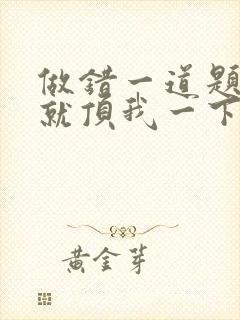 做錯一道題
就頂我一下
黃金芽